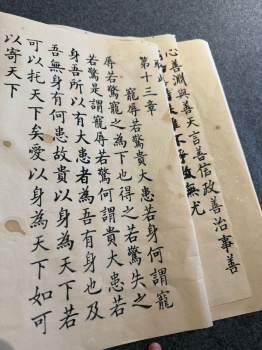 心善淵與善天言善信政善治事善
唯不爭故無尤
第十三章
寵辱若驚貴大患若身何謂寵
辱若驚寵之為下也得之若驚失之
若驚是謂寵辱若驚何謂貴大患若
身吾所以有大患者為吾有身也及
吾無身有何患故貴以身為天下若
可以托天下矣愛以身為天下如可
以寄天下